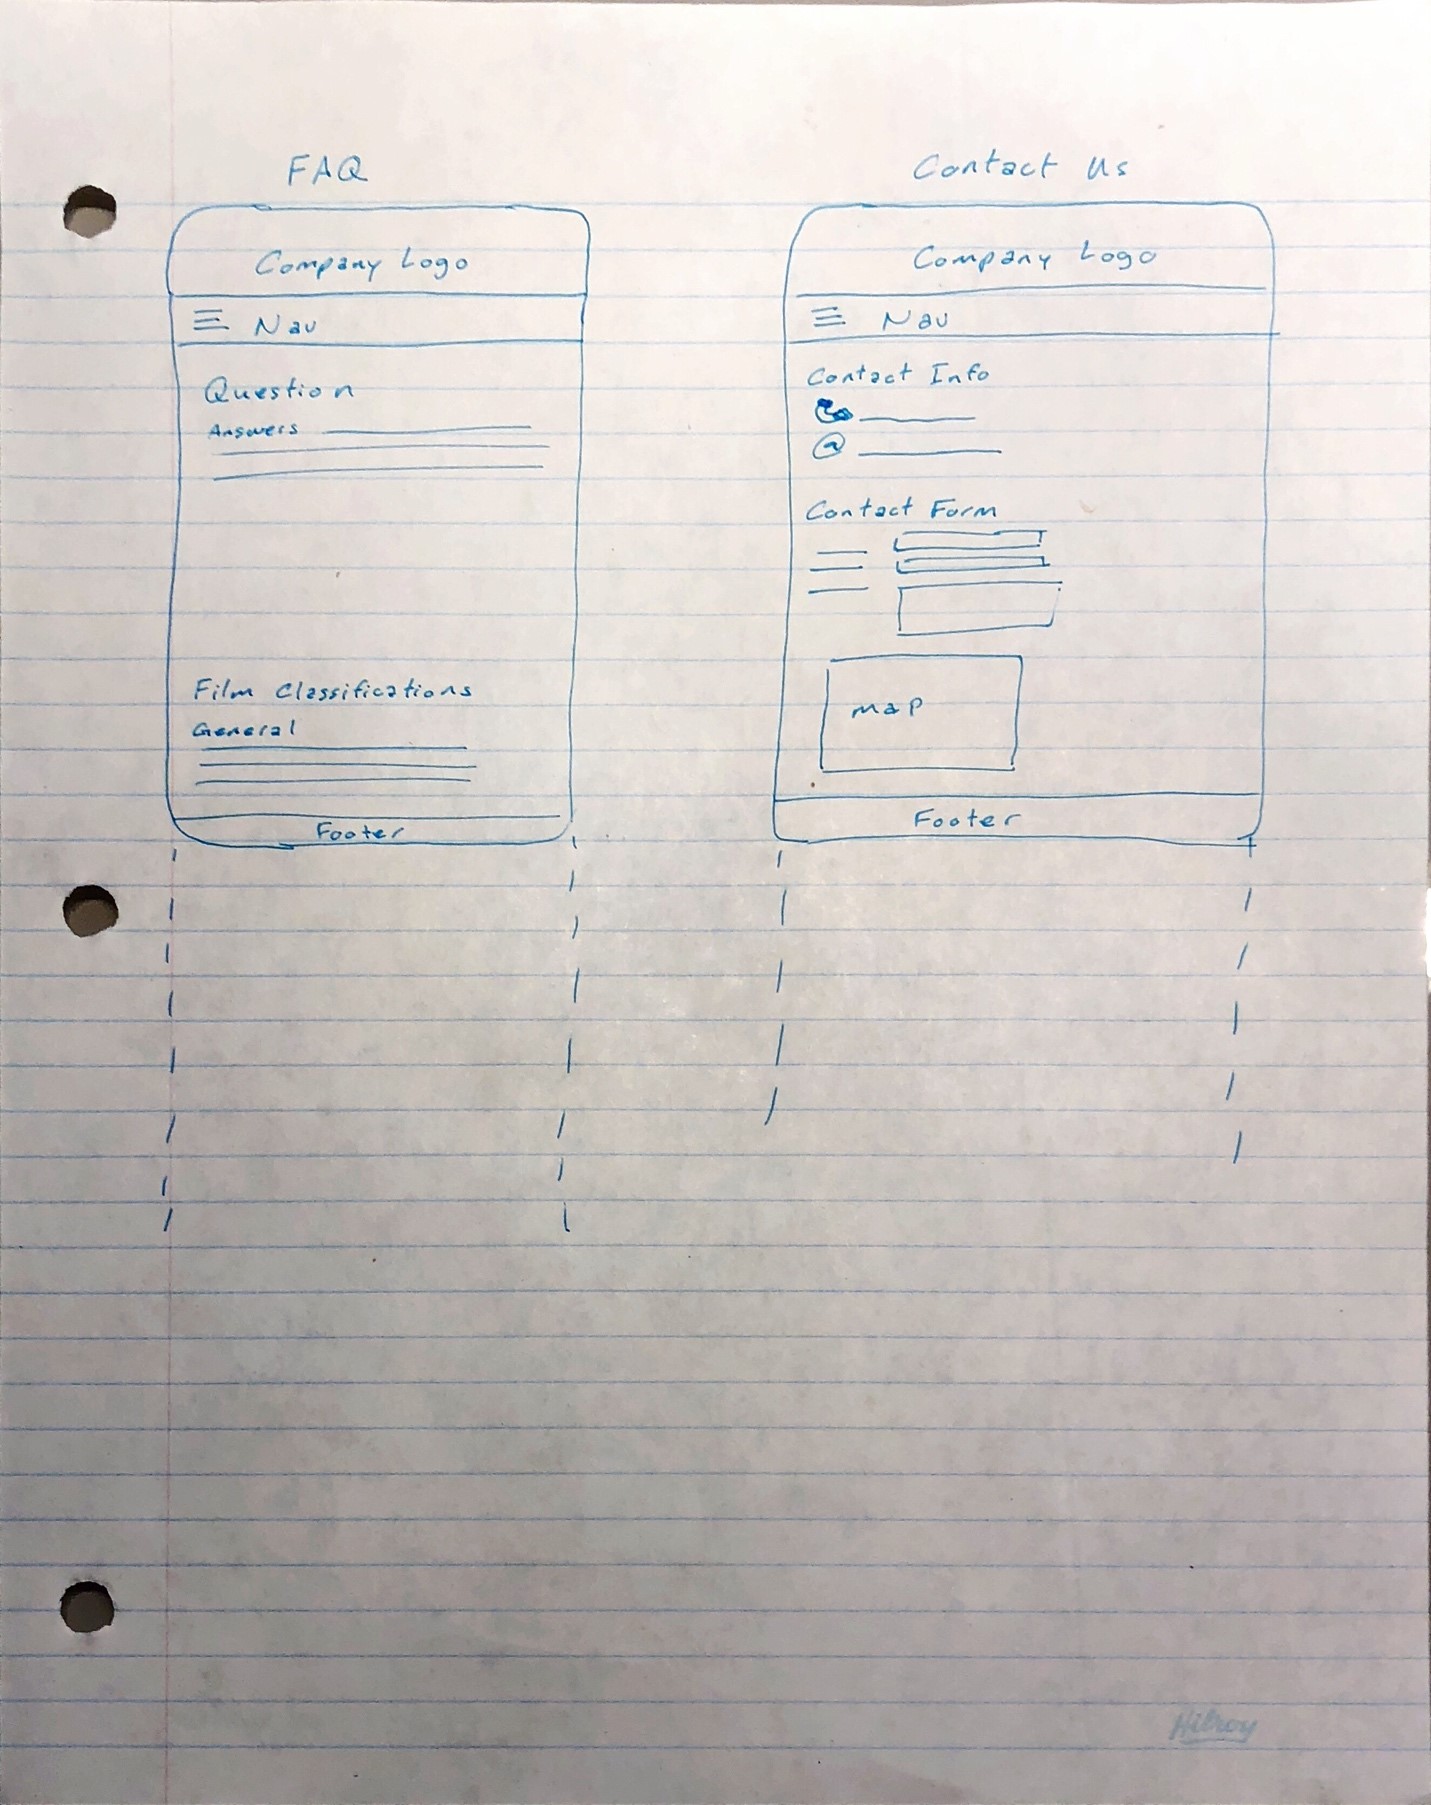 FAQ
Company Logo
Nav
Question
Answers
Film Classifications
General
Footer
Contact Us
Company Logo
Nav
Contact Info
@
Contact Form
map
Footer
Hilroy